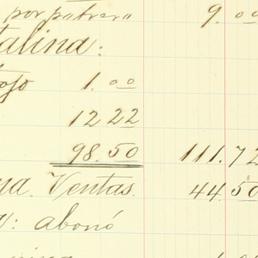 por potrero 9.00
talina:
ojo 1.00
12.22
98.50 111.72
na. Ventas. 44.50
abonó